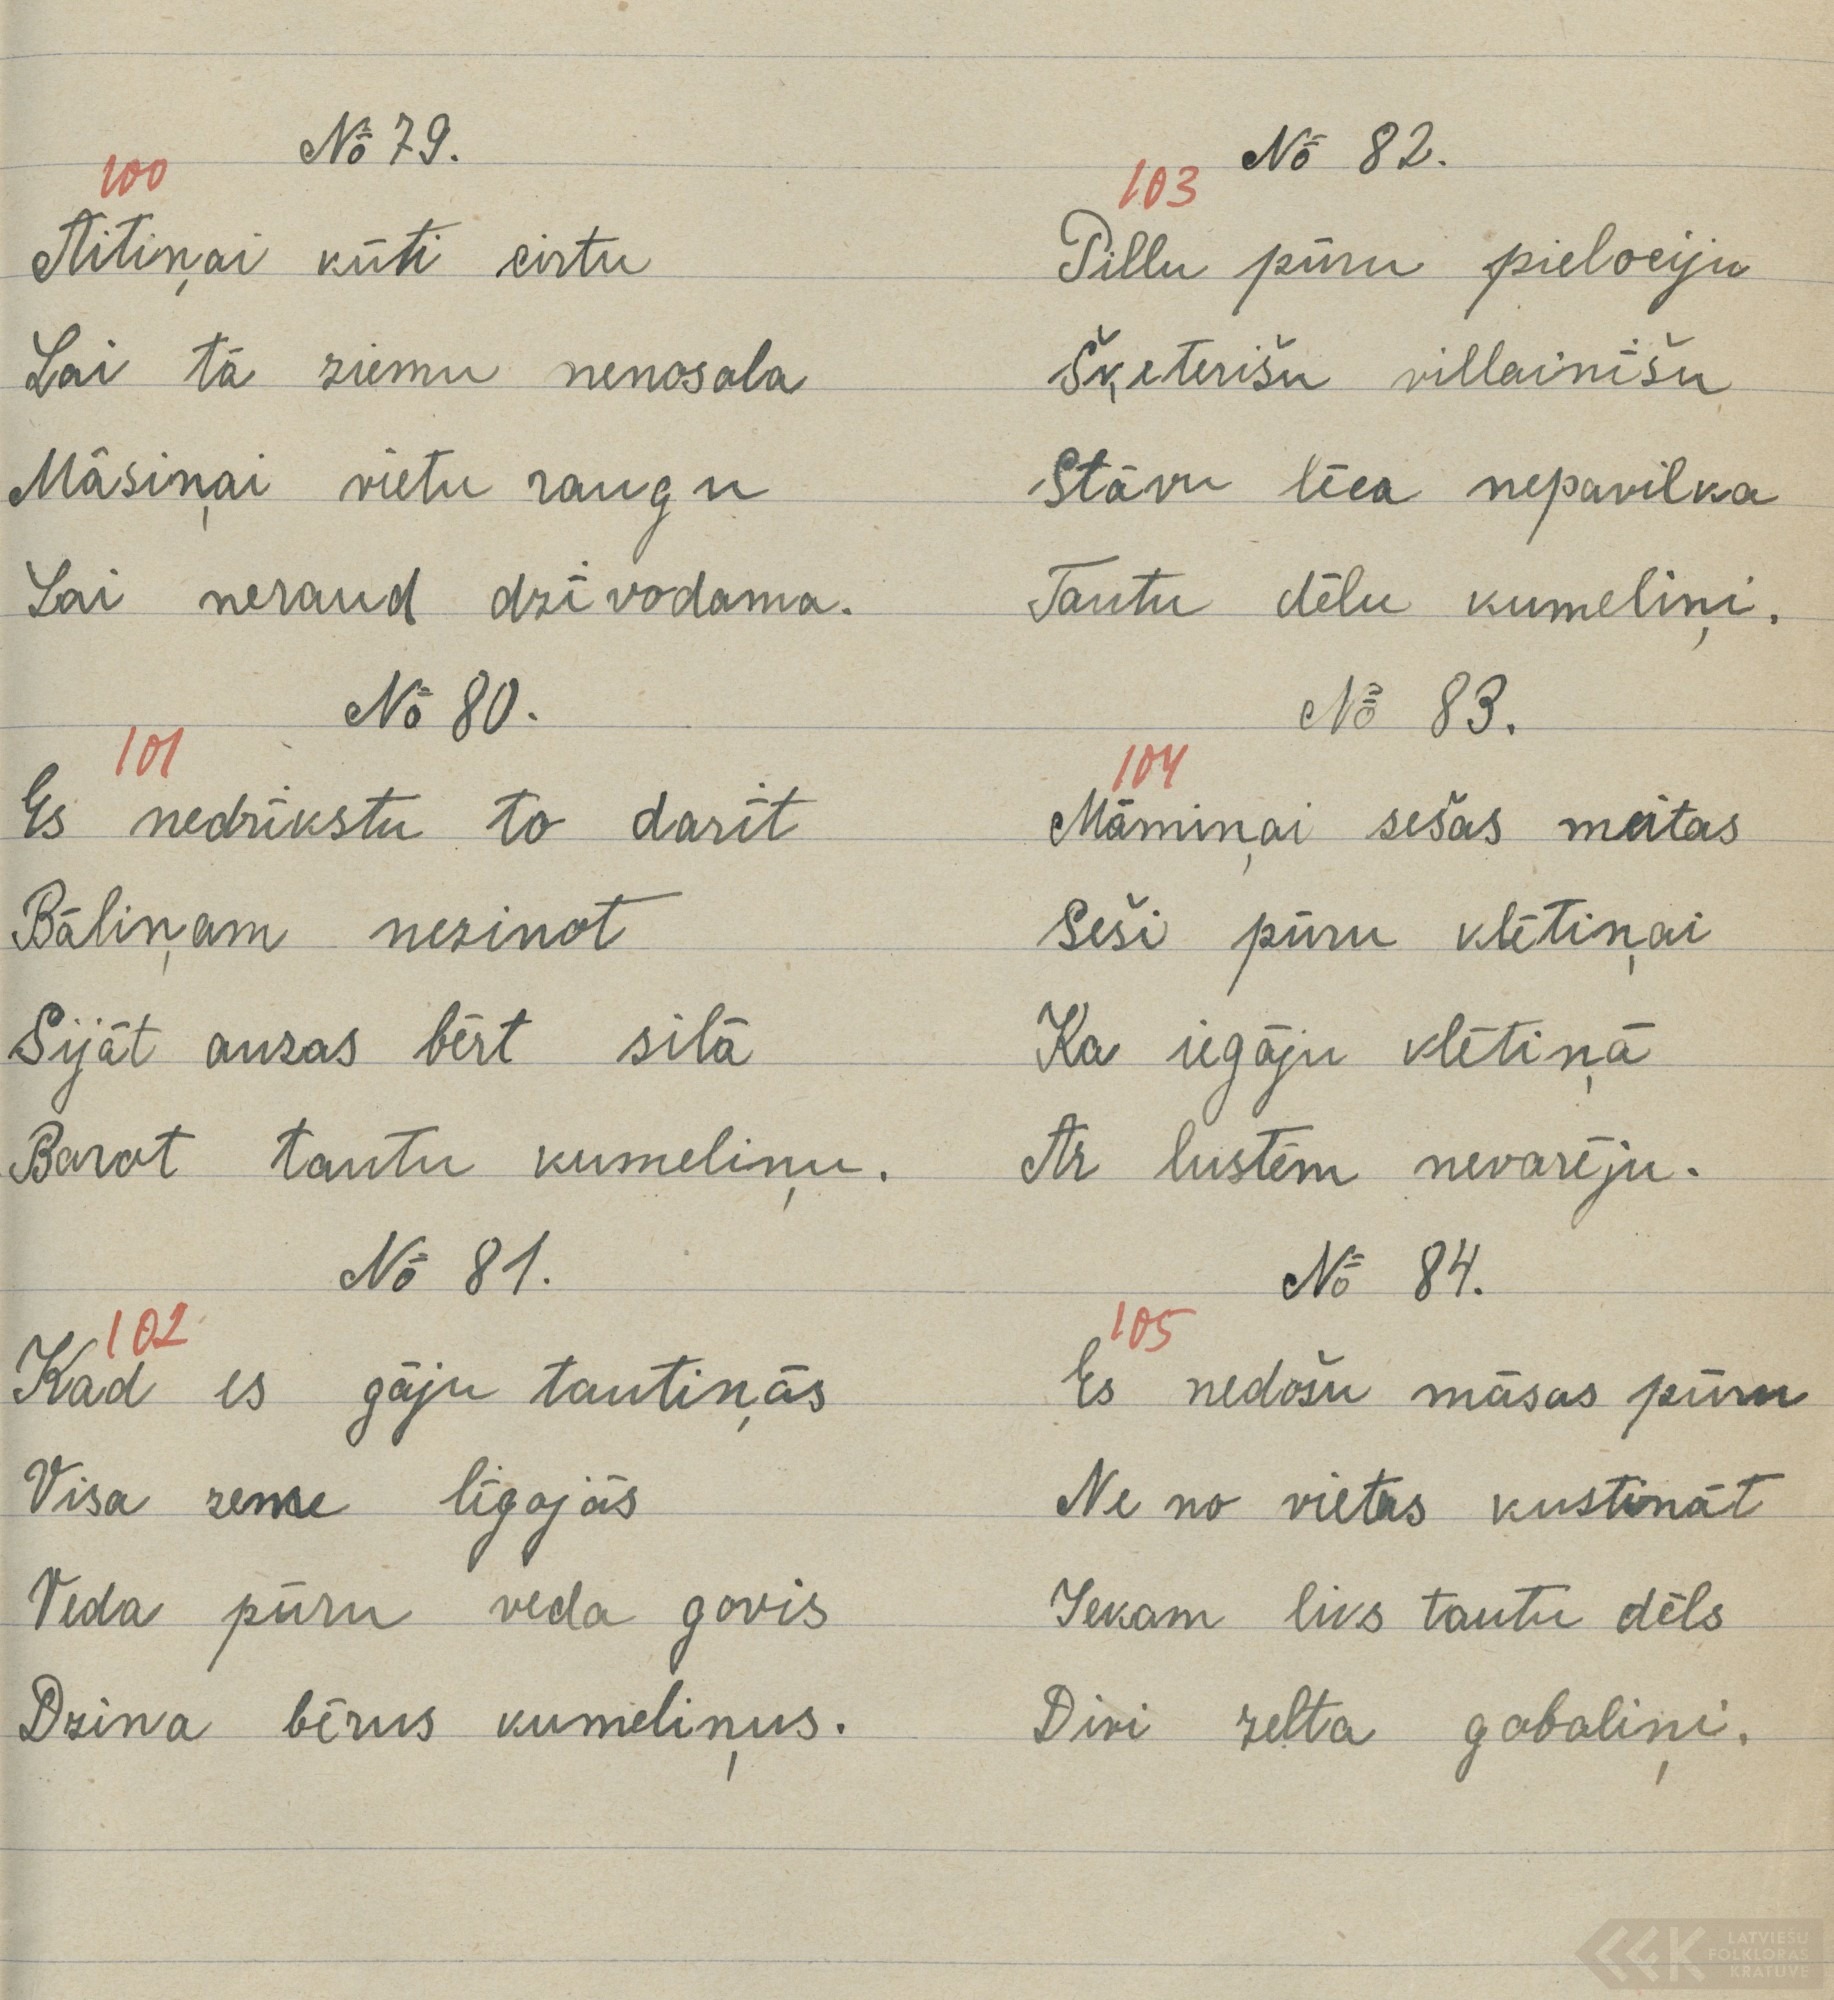 No 79.
100
Aitiņai kūti cirtu
Lai tā ziemu nenosala
Māsiņai vietu raugu
Lai neraud dzīvodama.
No 80.
101
Es nedrīkstu to darīt
Bāliņam nezinot
Sijāt auzas bērt silā
Barot tautu kumeliņu.
No 81.
102
Kad es gāju tautiņās
Visa zeme līgojās
Veda pūru veda govis
Dzina bērus kumeliņus.
No 82.
103
Pillu pūru pielociju
Šķeterišu villainīšu
Stāvu lēca nepavilka
Tautu dēlu kumeliņi.
No 83.
104
Māmiņai sešas meitas
Seši pūru klētiņai
Ka iegāju klētiņā
Ar lustēm nevarēju.
No 84.
105
Es nedošu māsas pūru
Ne no vietas kustināt
Iekam liks tautu dēls
Divi zelta gabaliņi.
LATVIEŠU
FOLKLORAS
KRĀTUVE